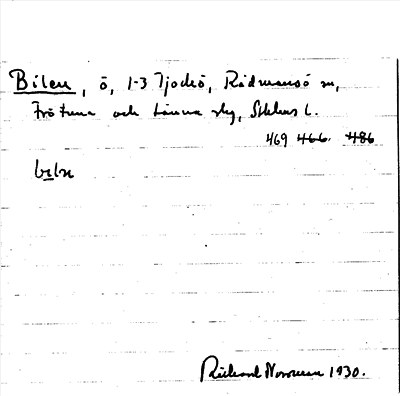 Bilen, ö, 1-3 Tjockö, Rådmansö sn,
Frötuna och Länna slg, Sthlms l.
469 466. 486
bɩln
Rickard Norrman 1930.